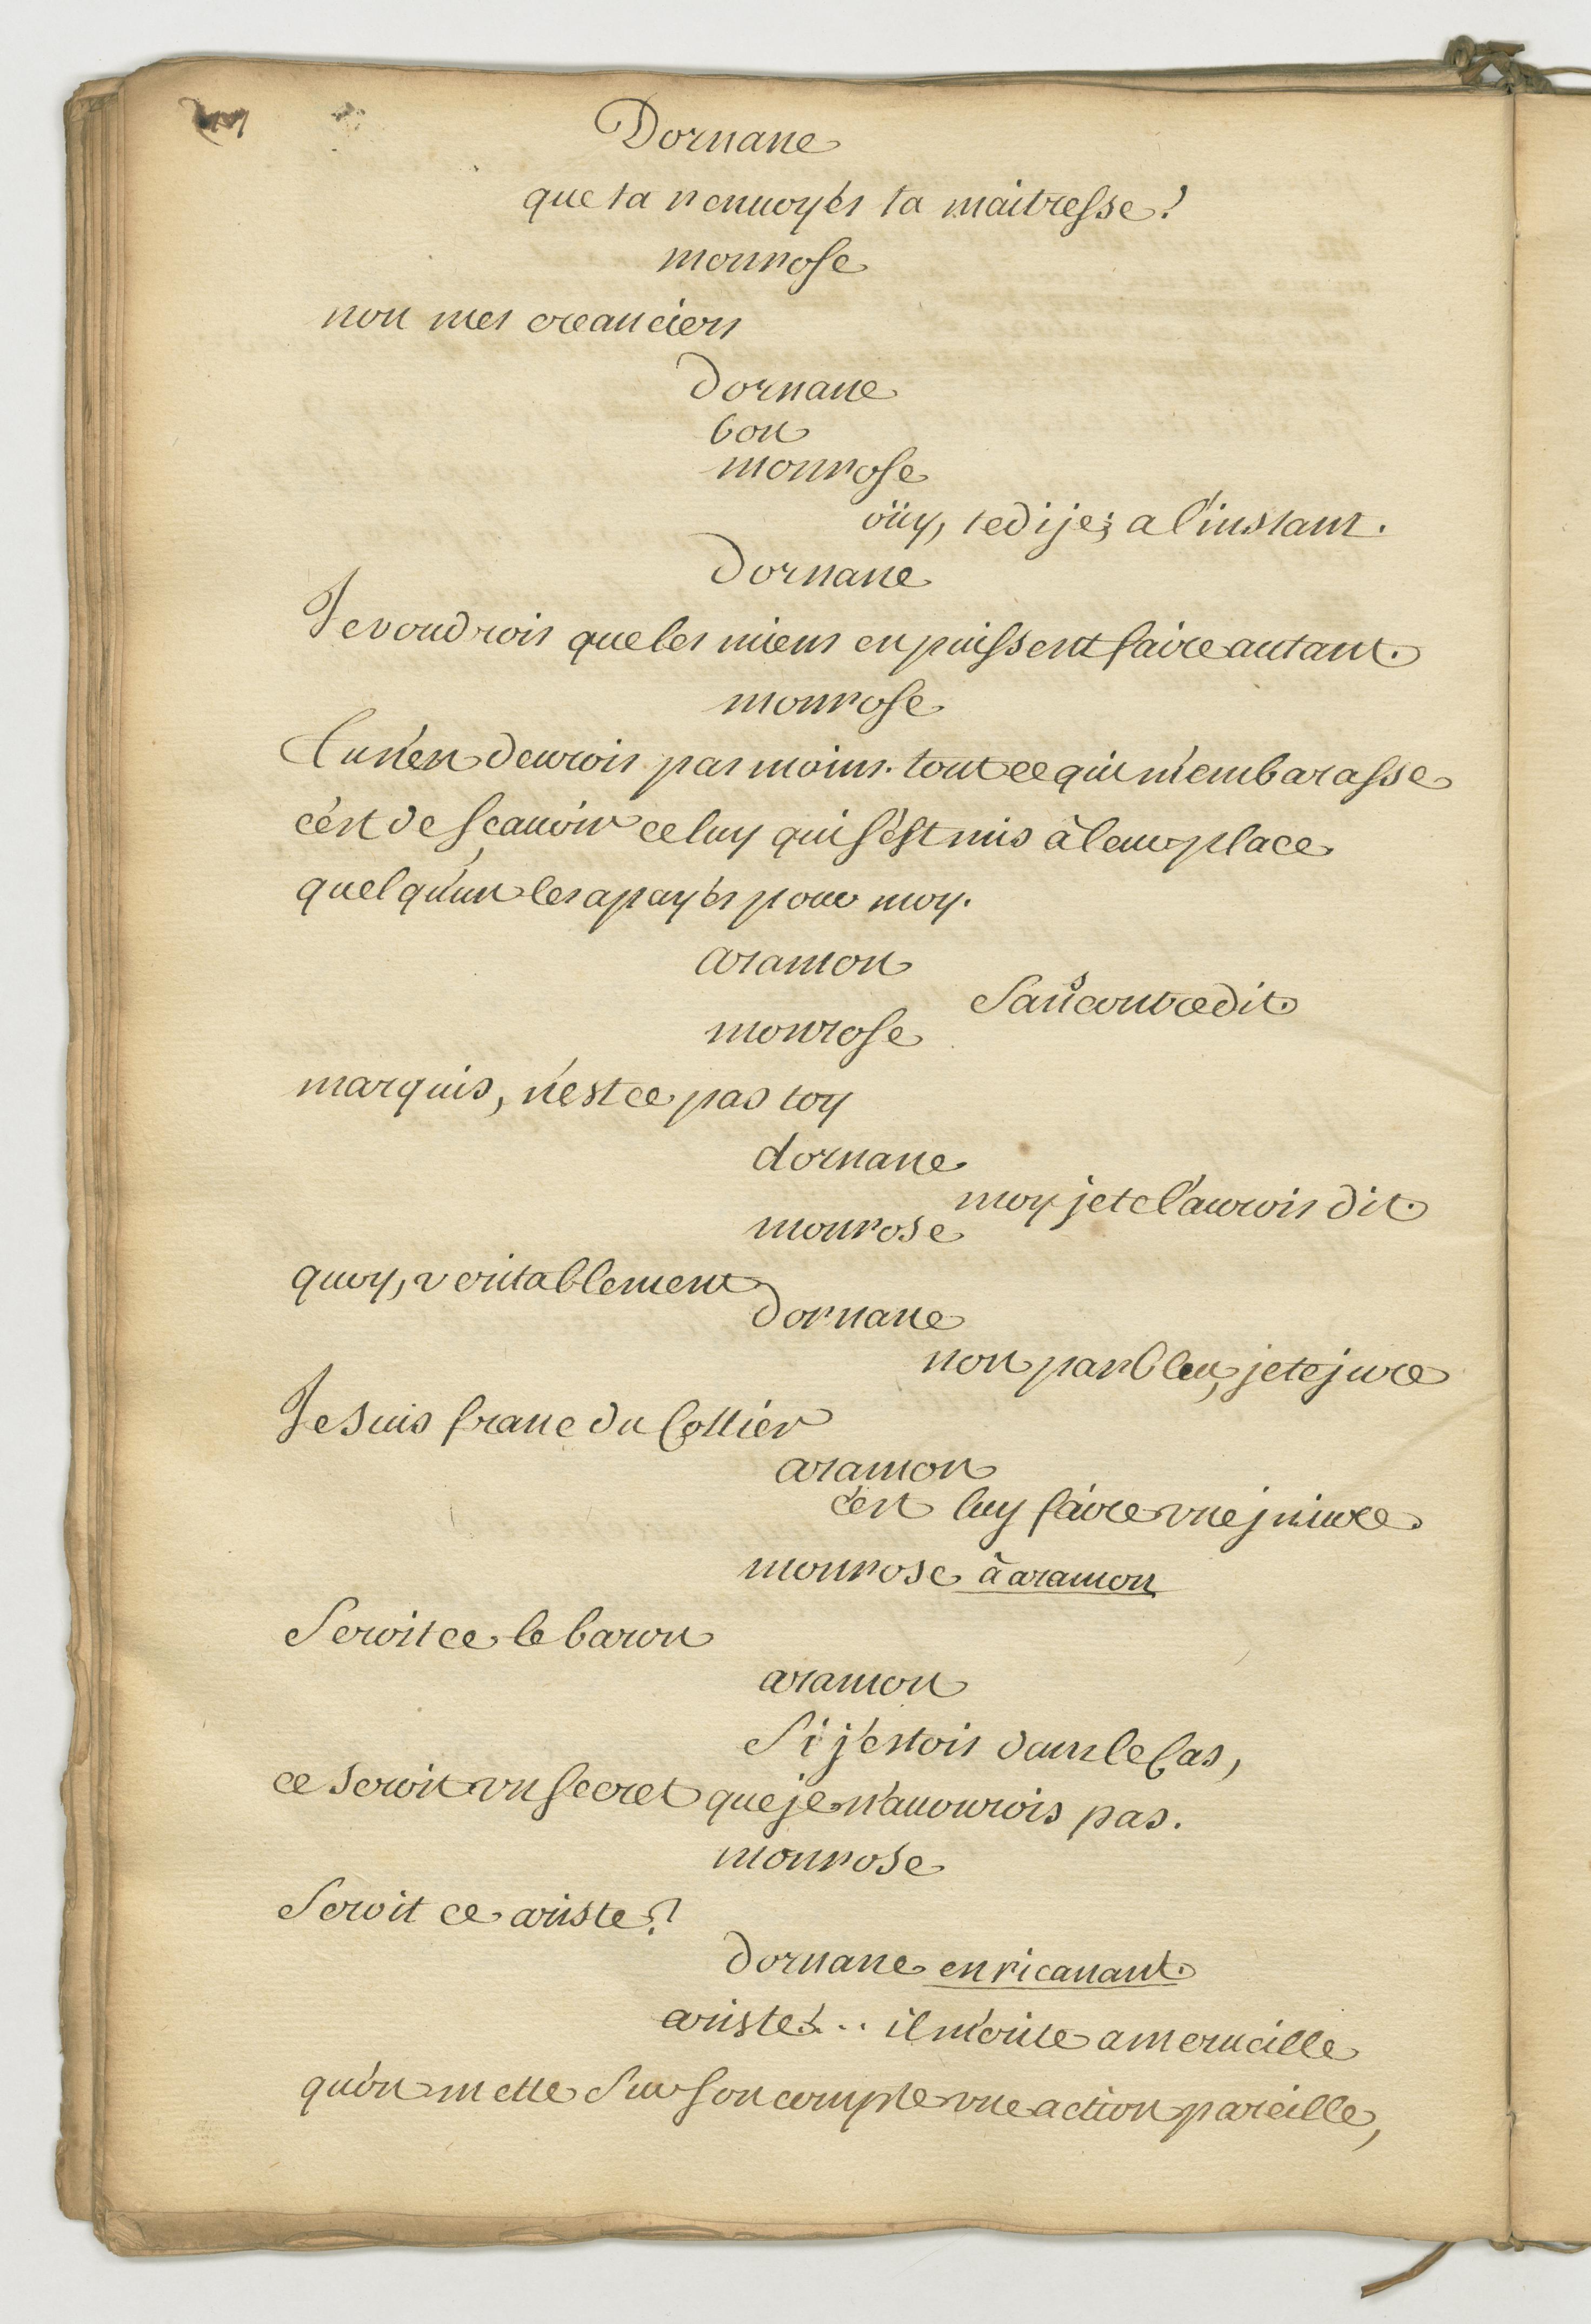 Dornane
que ta renuoyés ta maitresse?
monrose
non mes creanciers
Dornane
bon
monrose
oüy, te dije; a l'instant.
Dornane
Je voudrois que les miens en puissent faire autant.
monrose
Tu n'en deurois pas moins. tout ce qui m'embarasse
c'est de sçauoir celuy qui s'est mis à leur place
quelqu'un les a payés pour moy.
aramon
Sans contredit.
monrose
marquis, n'est ce pas toy
dornane
moy je te l'aurois dit.
monrose
quoy, veritablement
Dornane
non parbleu, je te jure
Je suis franc du Collier
aramon
c'est luy faire vne jniure.
monrose à aramon
Seroit ce le baron
aramon
Si j'estois dans le Cas,
ce seroit vn secret que je n'auourois pas.
monrose
Seroit ce ariste?
Dornane en ricanant.
ariste!.. il m'erite a merueille
qu'on mette Sur son compte vne action pareille,